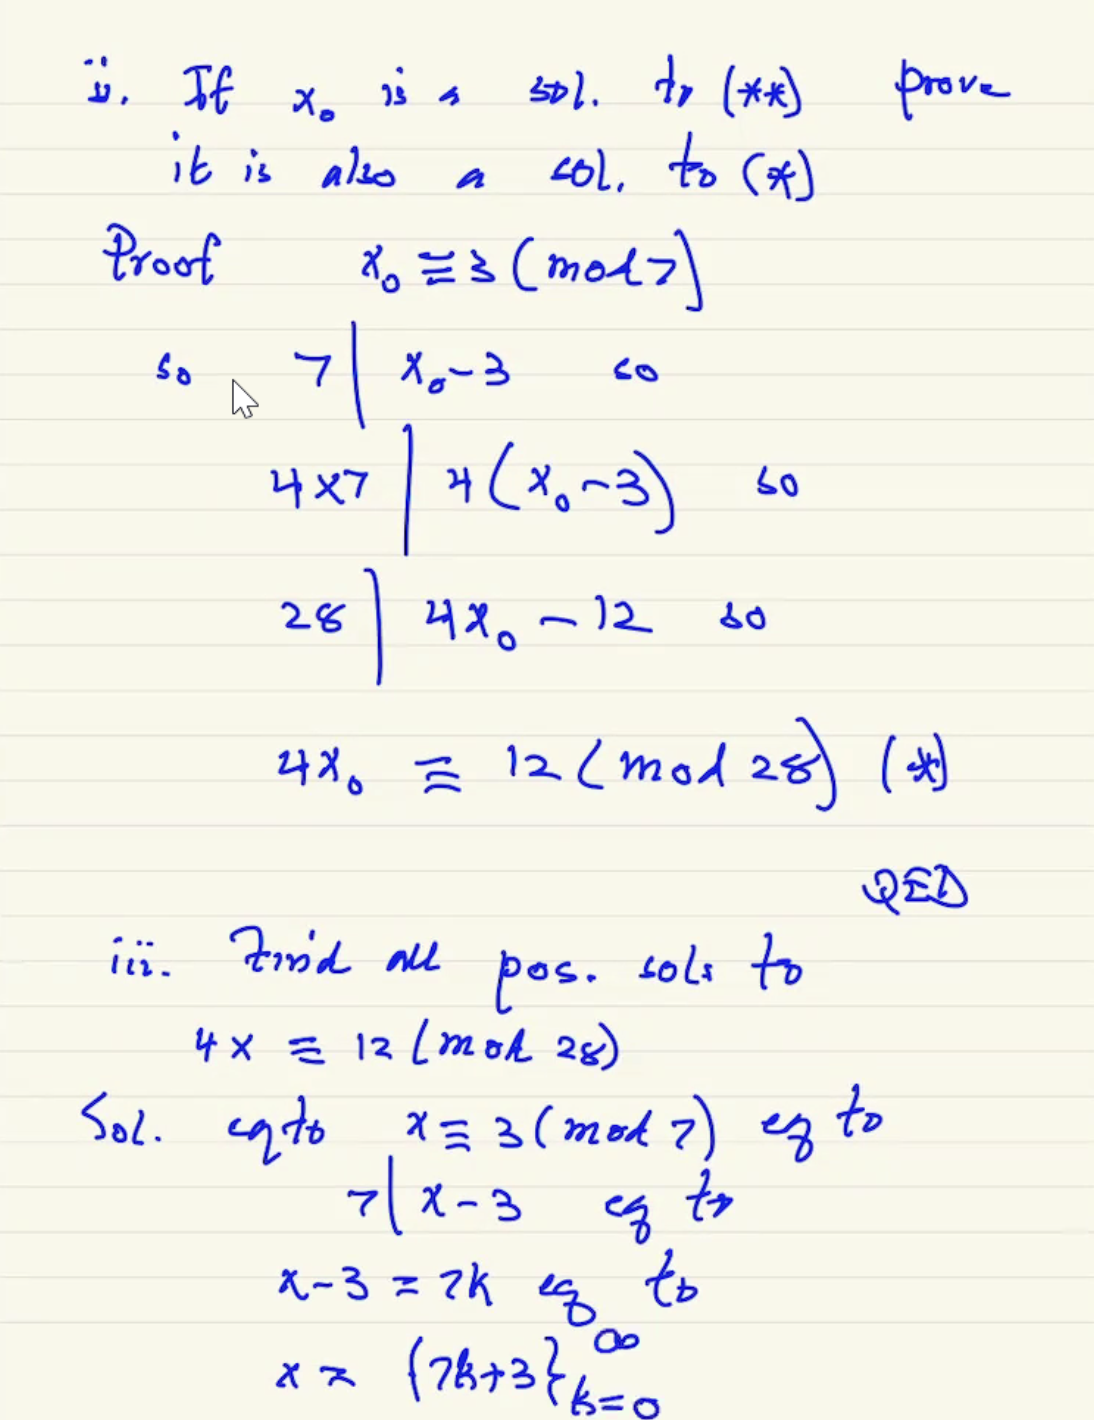 ii. If x₀ is a sol. to (**) prove
it is also a sol. to (*)
Proof x₀ ≡ 3 (mod 7)
so 7 | x₀ - 3 so
4 × 7 | 4 (x₀ - 3) so
28 | 4x₀ - 12 so
4x₀ ≡ 12 (mod 28) (*)
QED
iii. Find all pos. sols to
4x ≡ 12 (mod 28)
Sol. eq to x ≡ 3 (mod 7) eq to
7 | x - 3 eq to
x - 3 = 7k eq to
x = {7k+3}_{k=0}^{∞}